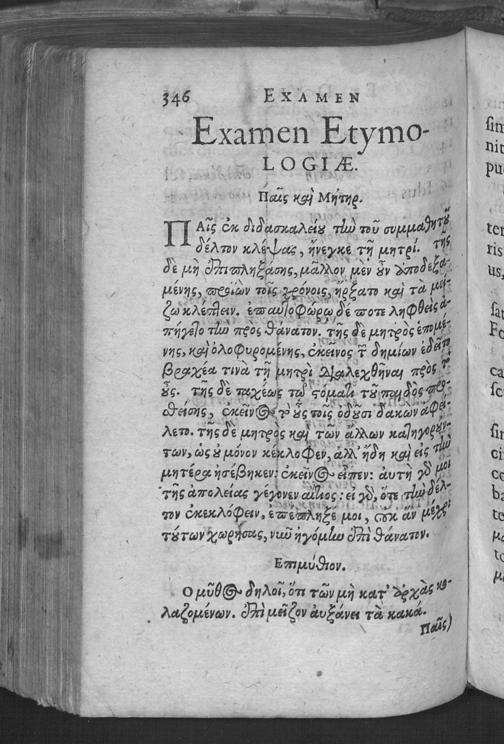 346 EXAMEN
Examen Etymo-
LOGIÆ.
Παῖς καὶ Μήτηρ.
ΠΑῖς ἐκ διδασκαλείου τὴν τοῦ συμμαθητοῦ
δέλτον κλέψας, ἤνεγκε τῇ μητρί. τῆς
δὲ μὴ ἐπιπληξάσης, μᾶλλον μὲν οὖν ὑποδεξα-
μένης, προϊὼν τοῖς χρόνοις, ἤρξατο καὶ τὰ μεί-
ζω κλέπτειν. ἐπαυτοφώρῳ δέ ποτε ληφθεὶς ἀ-
πήγετο τὴν πρὸς θάνατον. τῆς δὲ μητρὸς ἑπομέ-
νης, καὶ ὀλοφυρομένης, ἐκεῖνος τῶν δημίων ἐδεῖτο
βραχέα τινὰ τῇ μητρὶ διαλεχθῆναι πρὸς τὸ
οὖς. τῆς δὲ ταχέως τῷ στόματι τοῦ παιδὸς προσ-
θείσης, ἐκεῖνος τὸ οὖς τοῖς ὀδοῦσι δακὼν ἀφεί-
λετο. τῆς δὲ μητρὸς καὶ τῶν ἄλλων κατηγορούν-
των, ὡς οὐ μόνον κέκλοφεν, ἀλλ' ἤδη καὶ εἰς τὴν
μητέρα ἠσέβηκεν: ἐκεῖνος εἶπεν: αὐτὴ γάρ μοι
τῆς ἀπολείας γέγονεν αἴτιος: εἰ γὰρ, ὅτε τὴν δέλ-
τον ἐκεκλόφειν, ἐπέπληξέ μοι, οὐκ ἂν μέχρι
τούτων χωρήσας, νῦν ἠγόμην ἐπὶ θάνατον.
Επιμύθιον.
Ο μῦθος δηλοῖ, ὅτι τῶν μὴ κατ' ἀρχὰς κο-
λαζομένων. ἐπὶ μεῖζον αὐξάνει τὰ κακά.
Παῖς)